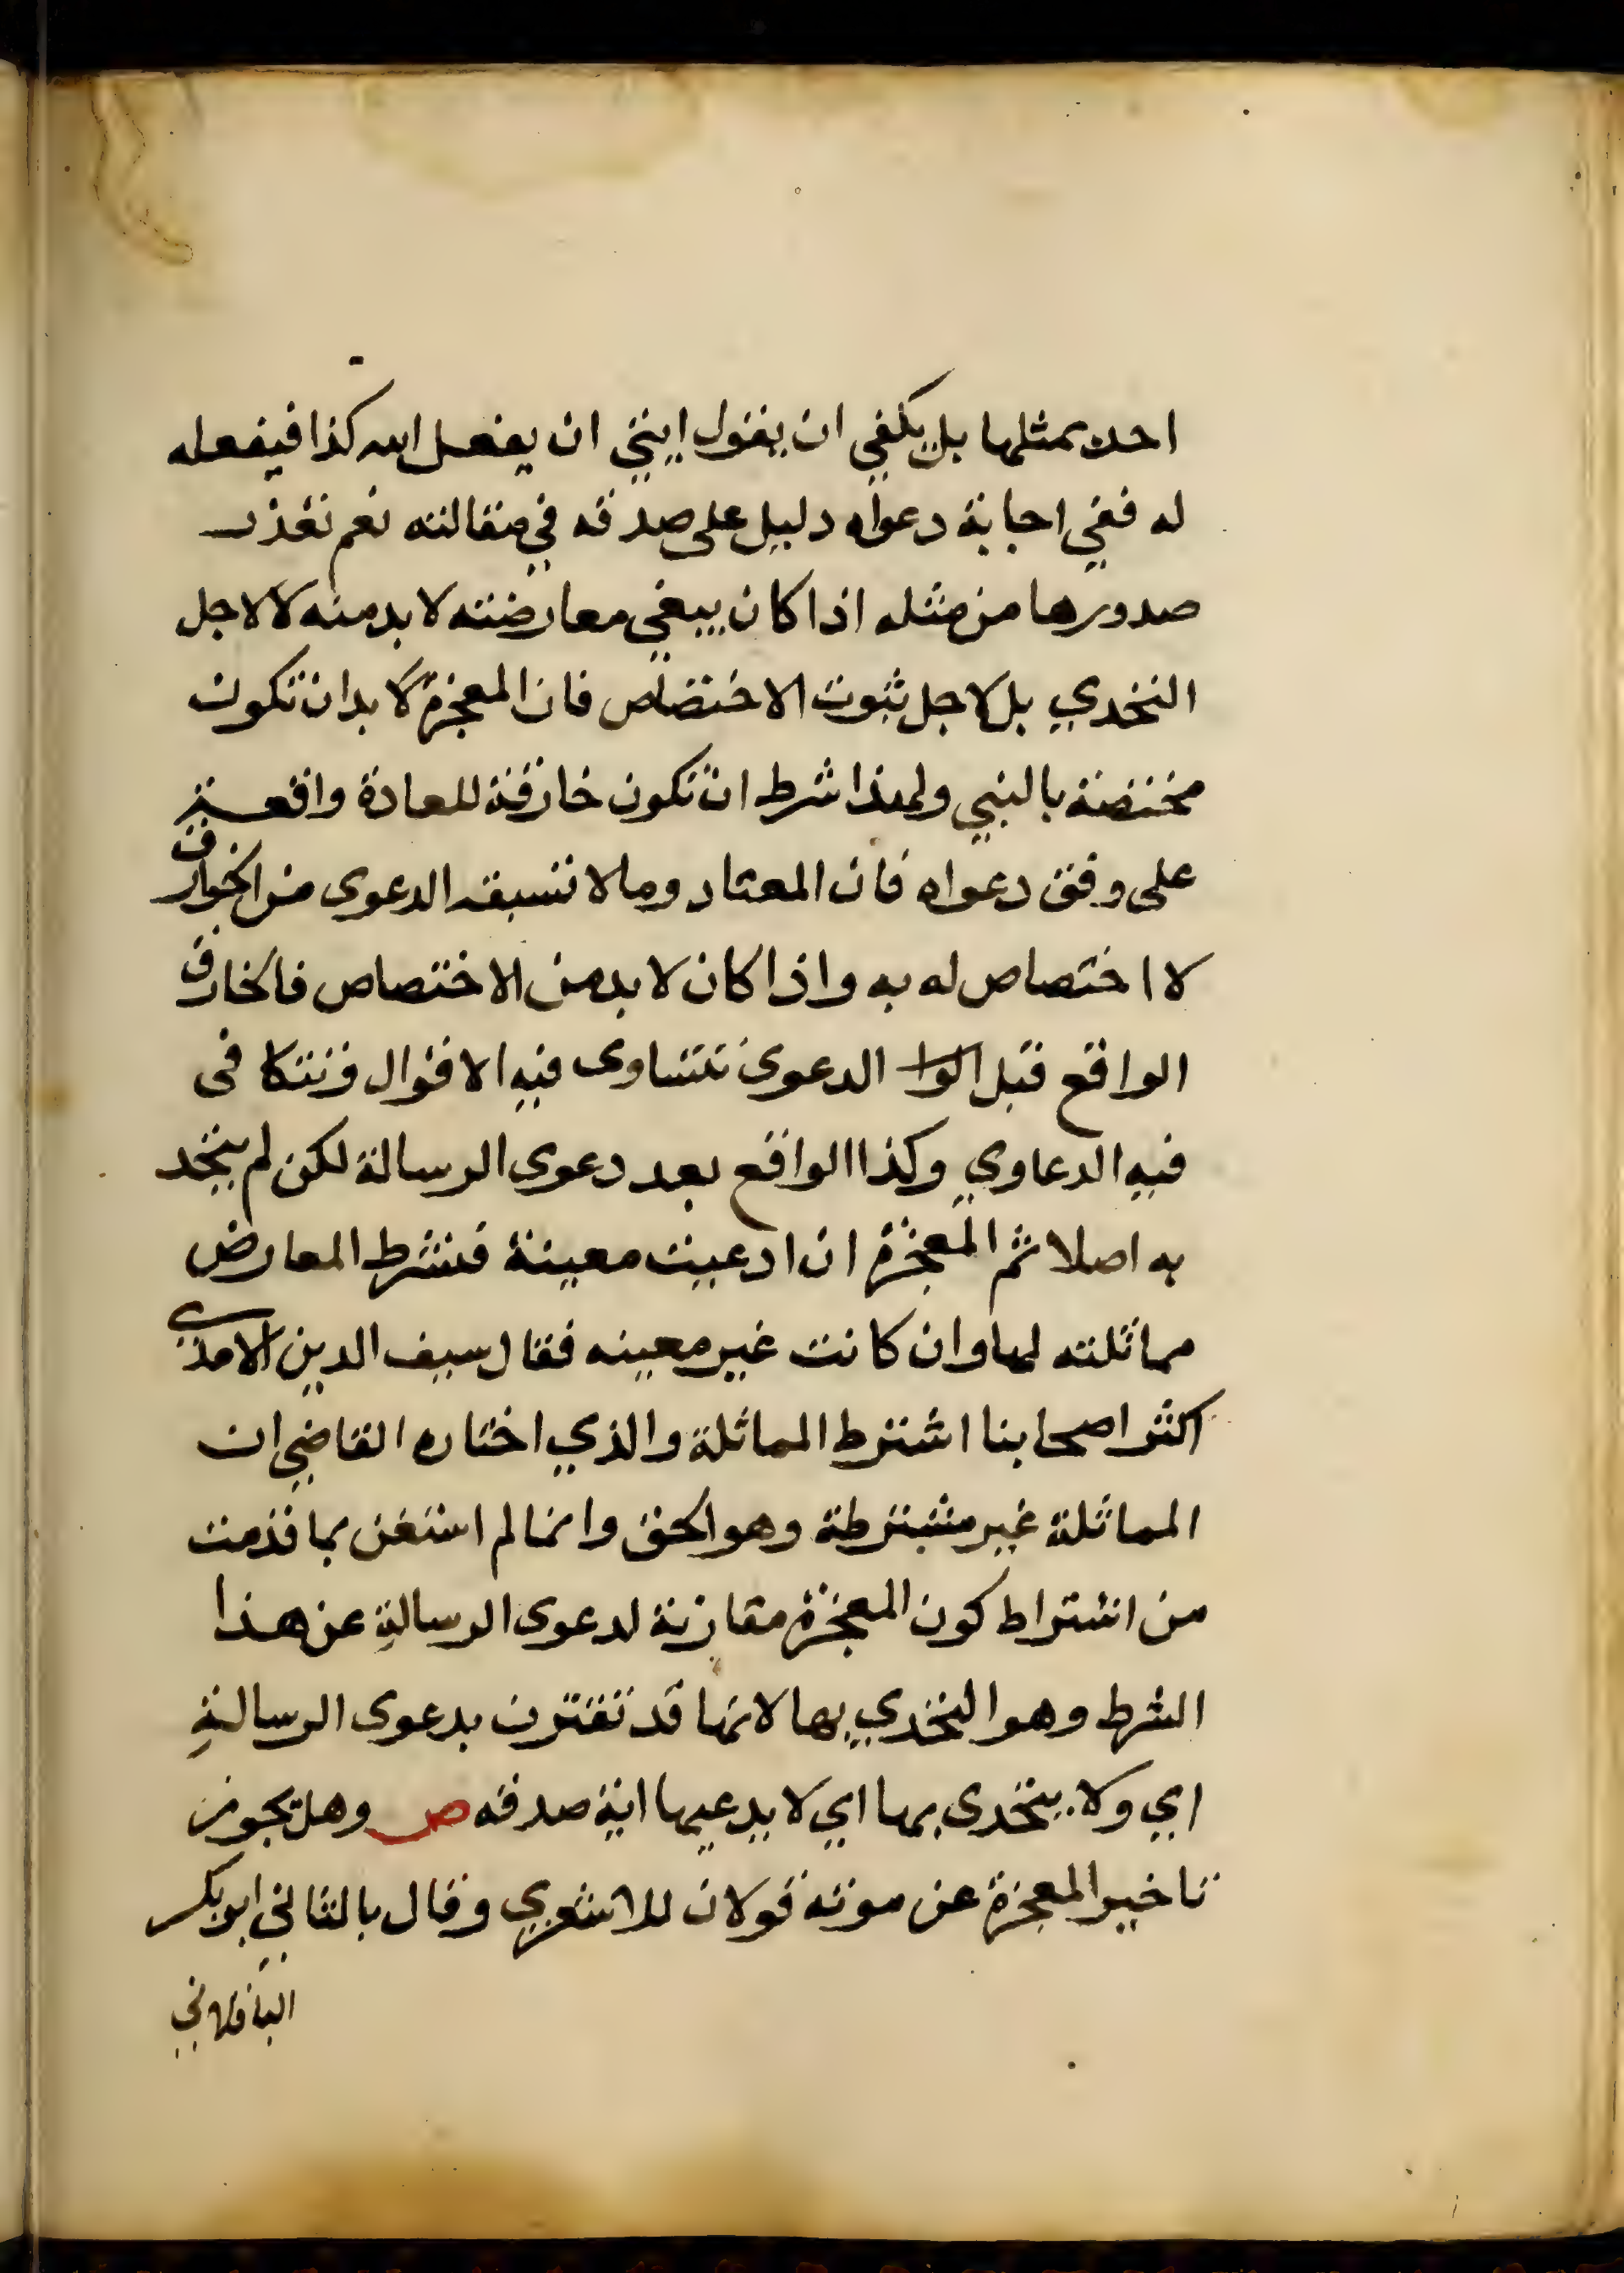 احد بمثلها بل يكفي ان يقول ايتي ان يفعل الله كذا فيفعله
له ففي اجابة دعواه دليل على صدقه في مقالته نعم تعذر
صدورها من مثله اذا كان يبغي معارضته لا بد منه لا لاجل
التحدي بل لاجل ثبوت الاختصاص فان المعجزة لا بد ان تكون
مختصة بالنبي ولهذا شرط ان تكون خارقة للعادة واقعة
على وفق دعواه فان المعتاد وما لا تسبقه الدعوى من الخوارق
لا اختصاص له به واذا كان لا بد من الاختصاص فالخارق
الواقع قبل الوا الدعوى تتساوى فيه الاقوال وتتكافى
فيه الدعاوي وكذا الواقع بعد دعوى الرسالة لكن لم يتحد
به اصلا ثم المعجزة ان ادعيت معينة فشرط المعارض
مماثلته لها وان كانت غير معينه فقال سيف الدين الامدي
اكثر اصحابنا اشترط المماثلة والذي اختاره القاضي ان
المماثلة غير مشترطة وهو الحق وانما لم استغن بما قدمت
من اشتراط كون المعجزة مقارنة لدعوى الرسالة عن هذا
الشرط وهو التحدي بها لانها قد تقترن بدعوى الرسالة
اي ولا يتحدى بها اي لا يدعيها اية صدقه ص وهل يجوز
تاخير المعجزة عن موته قولان للاشعري وقال بالثاني ابو بكر
الباقلاني